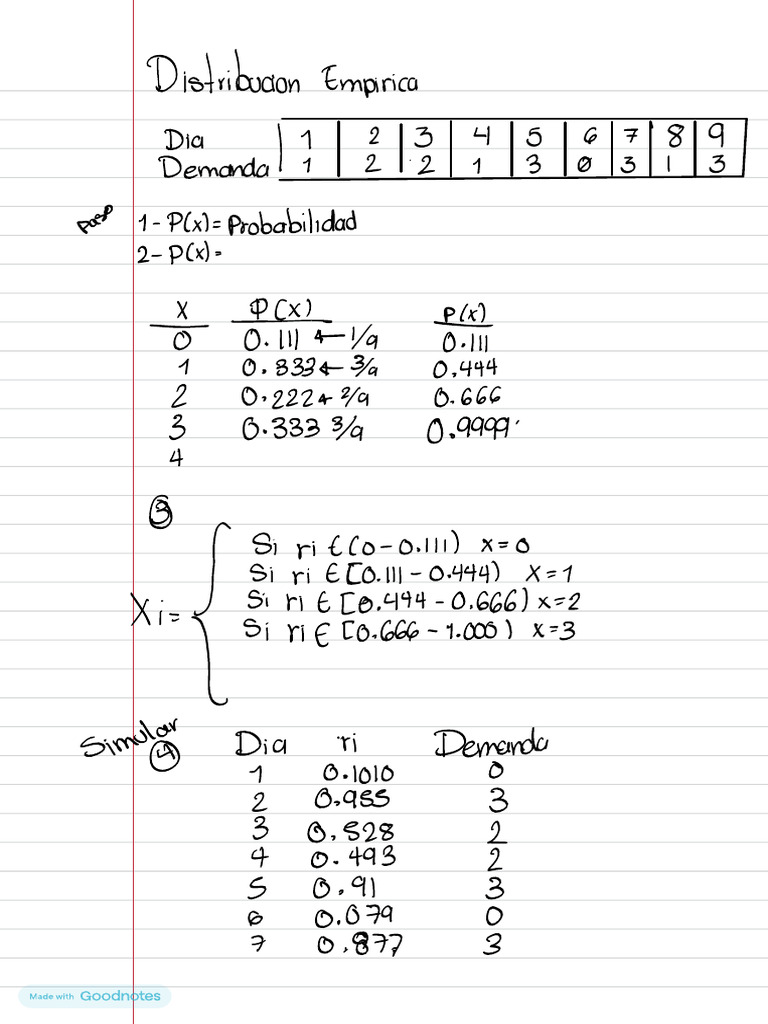 Distribucion Empirica
Dia 1 2 3 4 5 6 7 8 9
Demanda 1 2 2 1 3 0 3 1 3
Paso 1 - P(x) = Probabilidad
2 - P(x) =
X P(x) P(x)
0 0.111 ← 1/9 0.111
1 0.333 ← 3/9 0,444
2 0.222 ← 2/9 0.666
3 0.333 3/9 0.9999
4
3
Si ri ∈ (0 - 0.111) x = 0
Si ri ∈ [0.111 - 0.444) X = 1
Xi =
Si ri ∈ [0.444 - 0.666) x = 2
Si ri ∈ [0.666 - 1.000) x = 3
Simular
4
Dia ri Demanda
1 0.1010 0
2 0.955 3
3 0.528 2
4 0.493 2
5 0.91 3
6 0.079 0
7 0.877 3
Made with Goodnotes